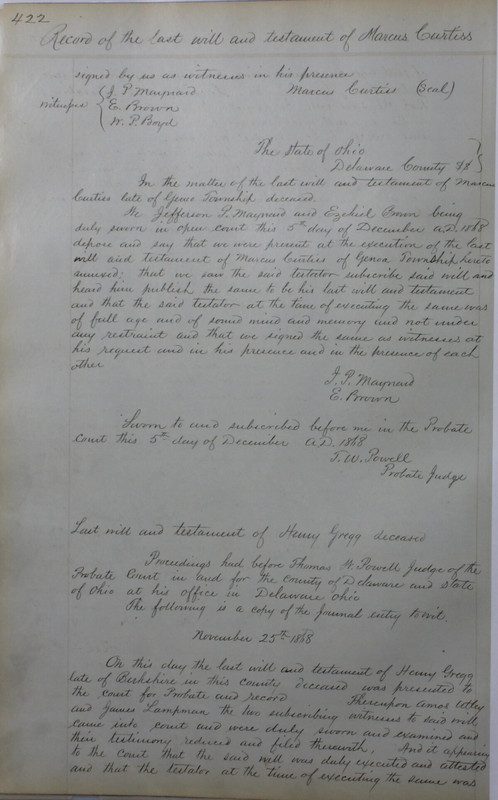 422
Record of the last will and testament of Marcus Curtiss
signed by us as witnesses in his presence
J. P. Maynard Marcus Curtiss (Seal)
witnesses E. Brown
W. P. Boyd
The State of Ohio
Delaware County SS
In the matter of the last will and testament of Marcus
Curtiss late of Genoa Township deceased.
We Jefferson P. Maynard and Ezekiel Brown being
duly sworn in open court this 5th day of December A.D. 1868
depose and say that we were present at the execution of the last
will and testament of Marcus Curtiss of Genoa Township hereto
annexed; that we saw the said testator subscribe said will and
heard him publish the same to be his last will and testament
and that the said testator at the time of executing the same was
of full age and of sound mind and memory and not under
any restraint and that we signed the same as witnesses at
his request and in his presence and in the presence of each
other
J. P. Maynard
E. Brown
Sworn to and subscribed before me in the Probate
court this 5th day of December A.D. 1868
T. W. Powell
Probate Judge
Last will and testament of Henry Gregg deceased
Proceedings had before Thomas W. Powell Judge of the
Probate Court in and for the county of Delaware and State
of Ohio at his office in Delaware Ohio
The following is a copy of the Journal entry towit.
November 25th 1868
On this day the last will and testament of Henry Gregg
late of Berkshire in this county deceased was presented to
the court for Probate and record Thereupon Amos Utley
and James Lampman the two subscribing witnesses to said will
came into court and were duly sworn and examined and
their testimony reduced and filed therewith. And it appearing
to the court that the said will was duly executed and attested
and that the testator at the time of executing the same was